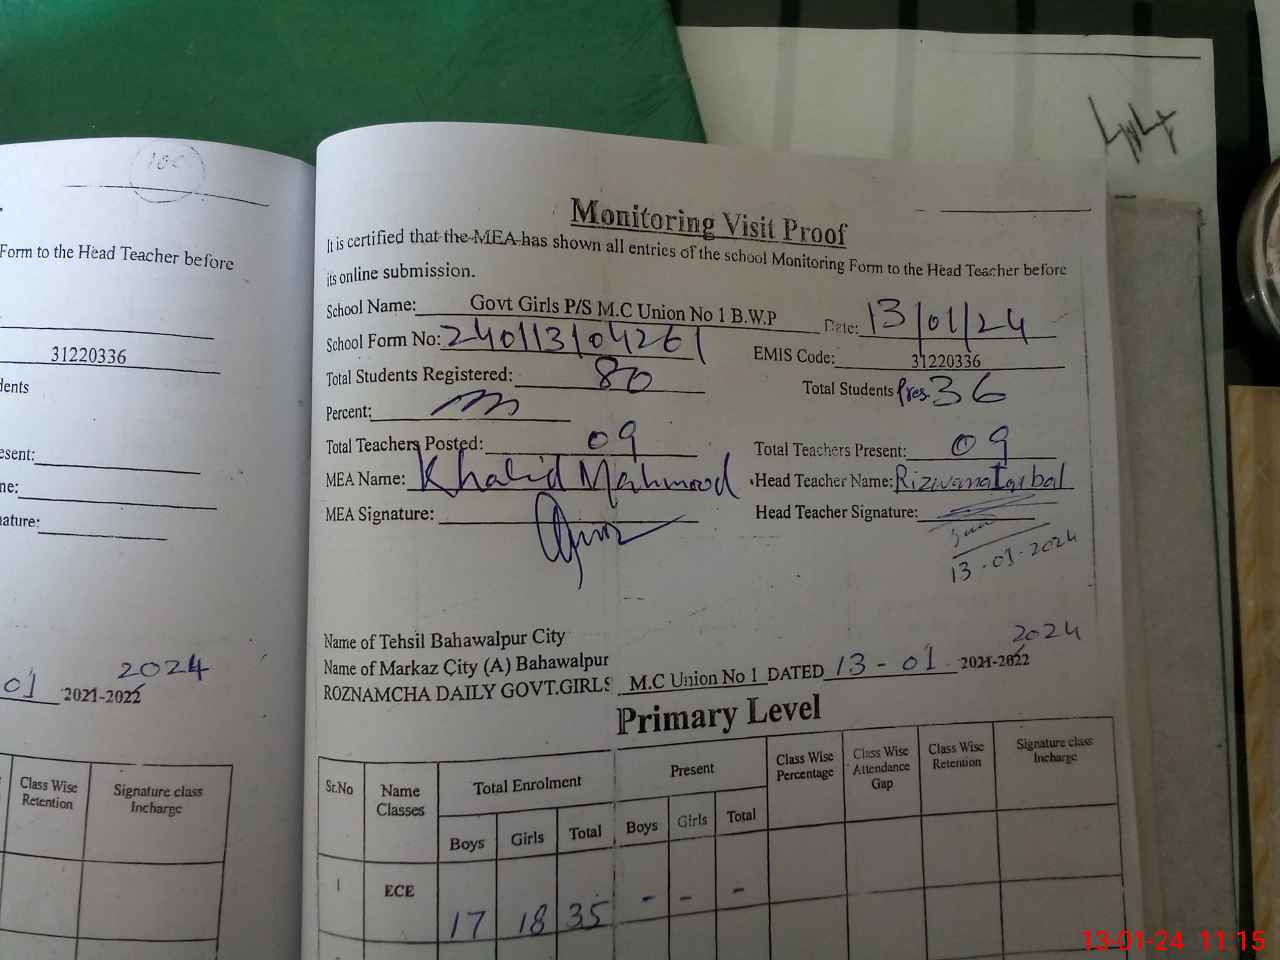 Form to the Head Teacher before
31220336
dents
esent:
ne:
ature:
01 2024 2021-2022
Class Wise Retention
Signature class Incharge
Monitoring Visit Proof
It is certified that the MEA has shown all entries of the school Monitoring Form to the Head Teacher before
its online submission.
School Name: Govt Girls P/S M.C Union No 1 B.W.P Date: 13/01/24
School Form No: 240113104261 EMIS Code: 31220336
Total Students Registered: 80 Total Students Pres. 36
Percent:
Total Teachers Posted: 09 Total Teachers Present: 09
MEA Name: Khalid Mahmood Head Teacher Name: Rizwana Iqbal
MEA Signature: Head Teacher Signature:
13.01.2024
Name of Tehsil Bahawalpur City
2024
Name of Markaz City (A) Bahawalpur
ROZNAMCHA DAILY GOVT.GIRLS M.C Union No 1 DATED 13-01 2021-2022
Primary Level
Sr.No Name Classes Total Enrolment Present Class Wise Percentage Class Wise Attendance Gap Class Wise Retention Signature class Incharge
Boys Girls Total Boys Girls Total
1 ECE 17 18 35 - - -
13-01-24 11:15